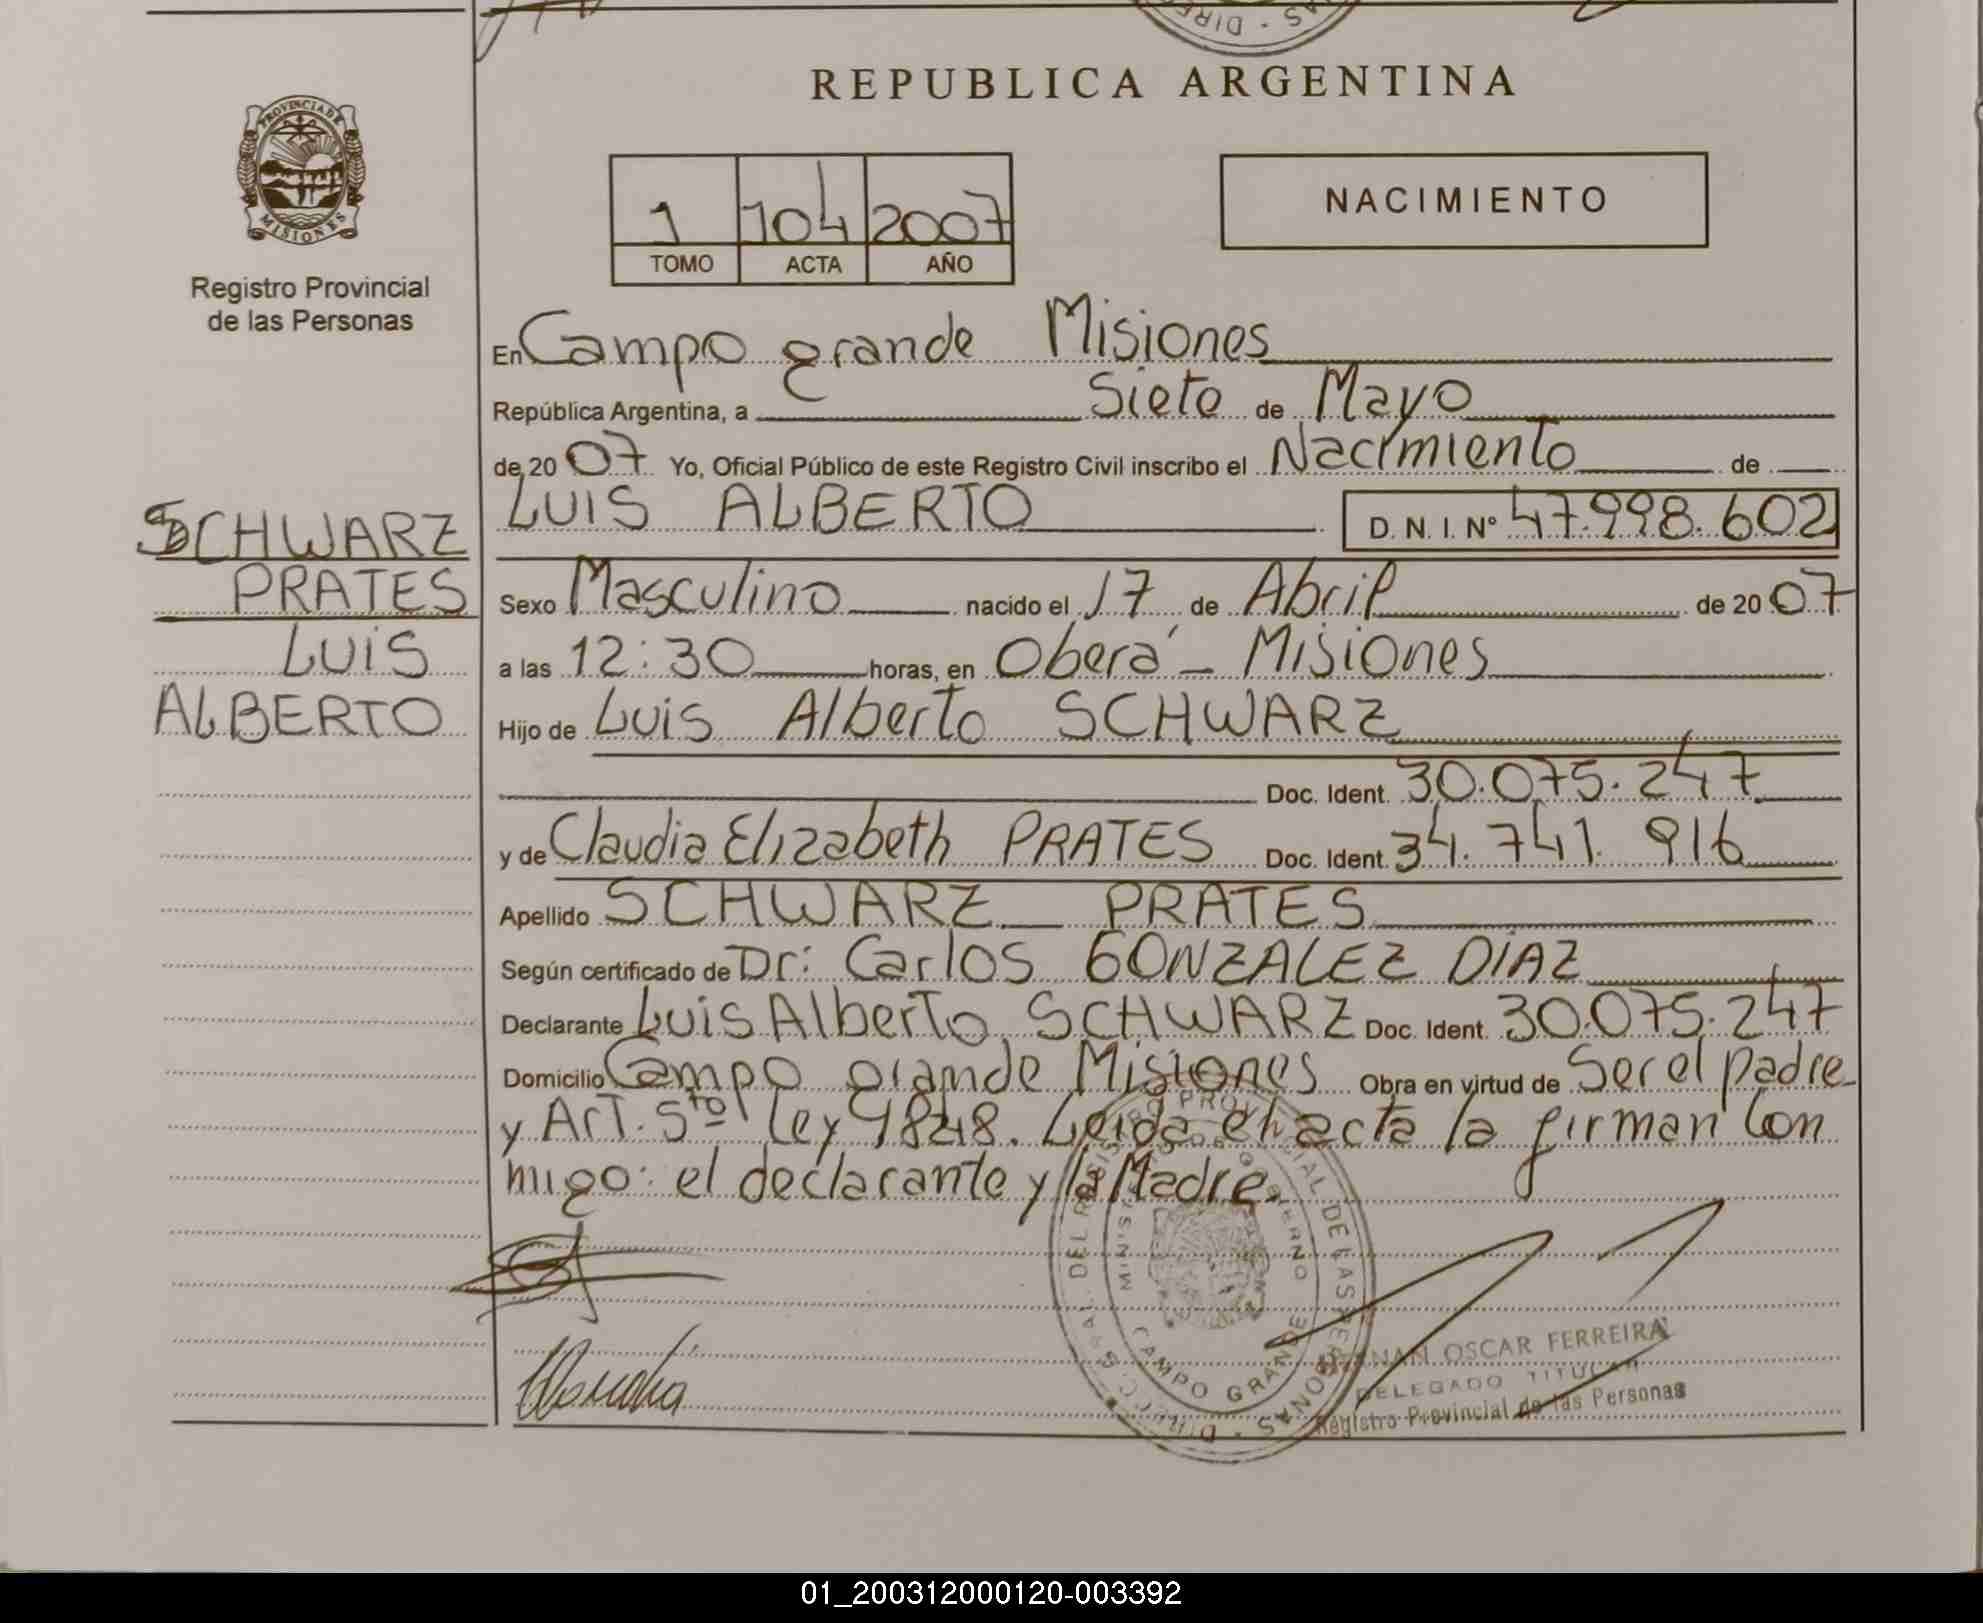 REPUBLICA ARGENTINA
PROVINCIA DE
MISIONES
Registro Provincial
de las Personas
1 104 2007
TOMO ACTA AÑO
NACIMIENTO
En Campo grande Misiones
República Argentina, a Siete de Mayo
de 20 07 Yo, Oficial Público de este Registro Civil inscribo el Nacimiento de
SCHWARZ
PRATES
LUIS
ALBERTO
LUIS ALBERTO D. N. I. Nº 47.998.602
Sexo Masculino nacido el 17 de Abril de 20 07
a las 12:30 horas, en Oberá - Misiones
Hijo de Luis Alberto SCHWARZ
Doc. Ident. 30.075.247
y de Claudia Elizabeth PRATES Doc. Ident. 34.741.916
Apellido SCHWARZ PRATES
Según certificado de Dr: Carlos GONZALEZ DIAZ
Declarante Luis Alberto SCHWARZ Doc. Ident. 30.075.247
Domicilio Campo grande Misiones Obra en virtud de Ser el padre
y ArT. 5to ley Leida el acta la firman Con
migo: el declarante y la Madre.
OSCAR FERREIRA
DELEGADO TITULAR
Registro Provincial de las Personas
CAMPO GRANDE
01_200312000120-003392